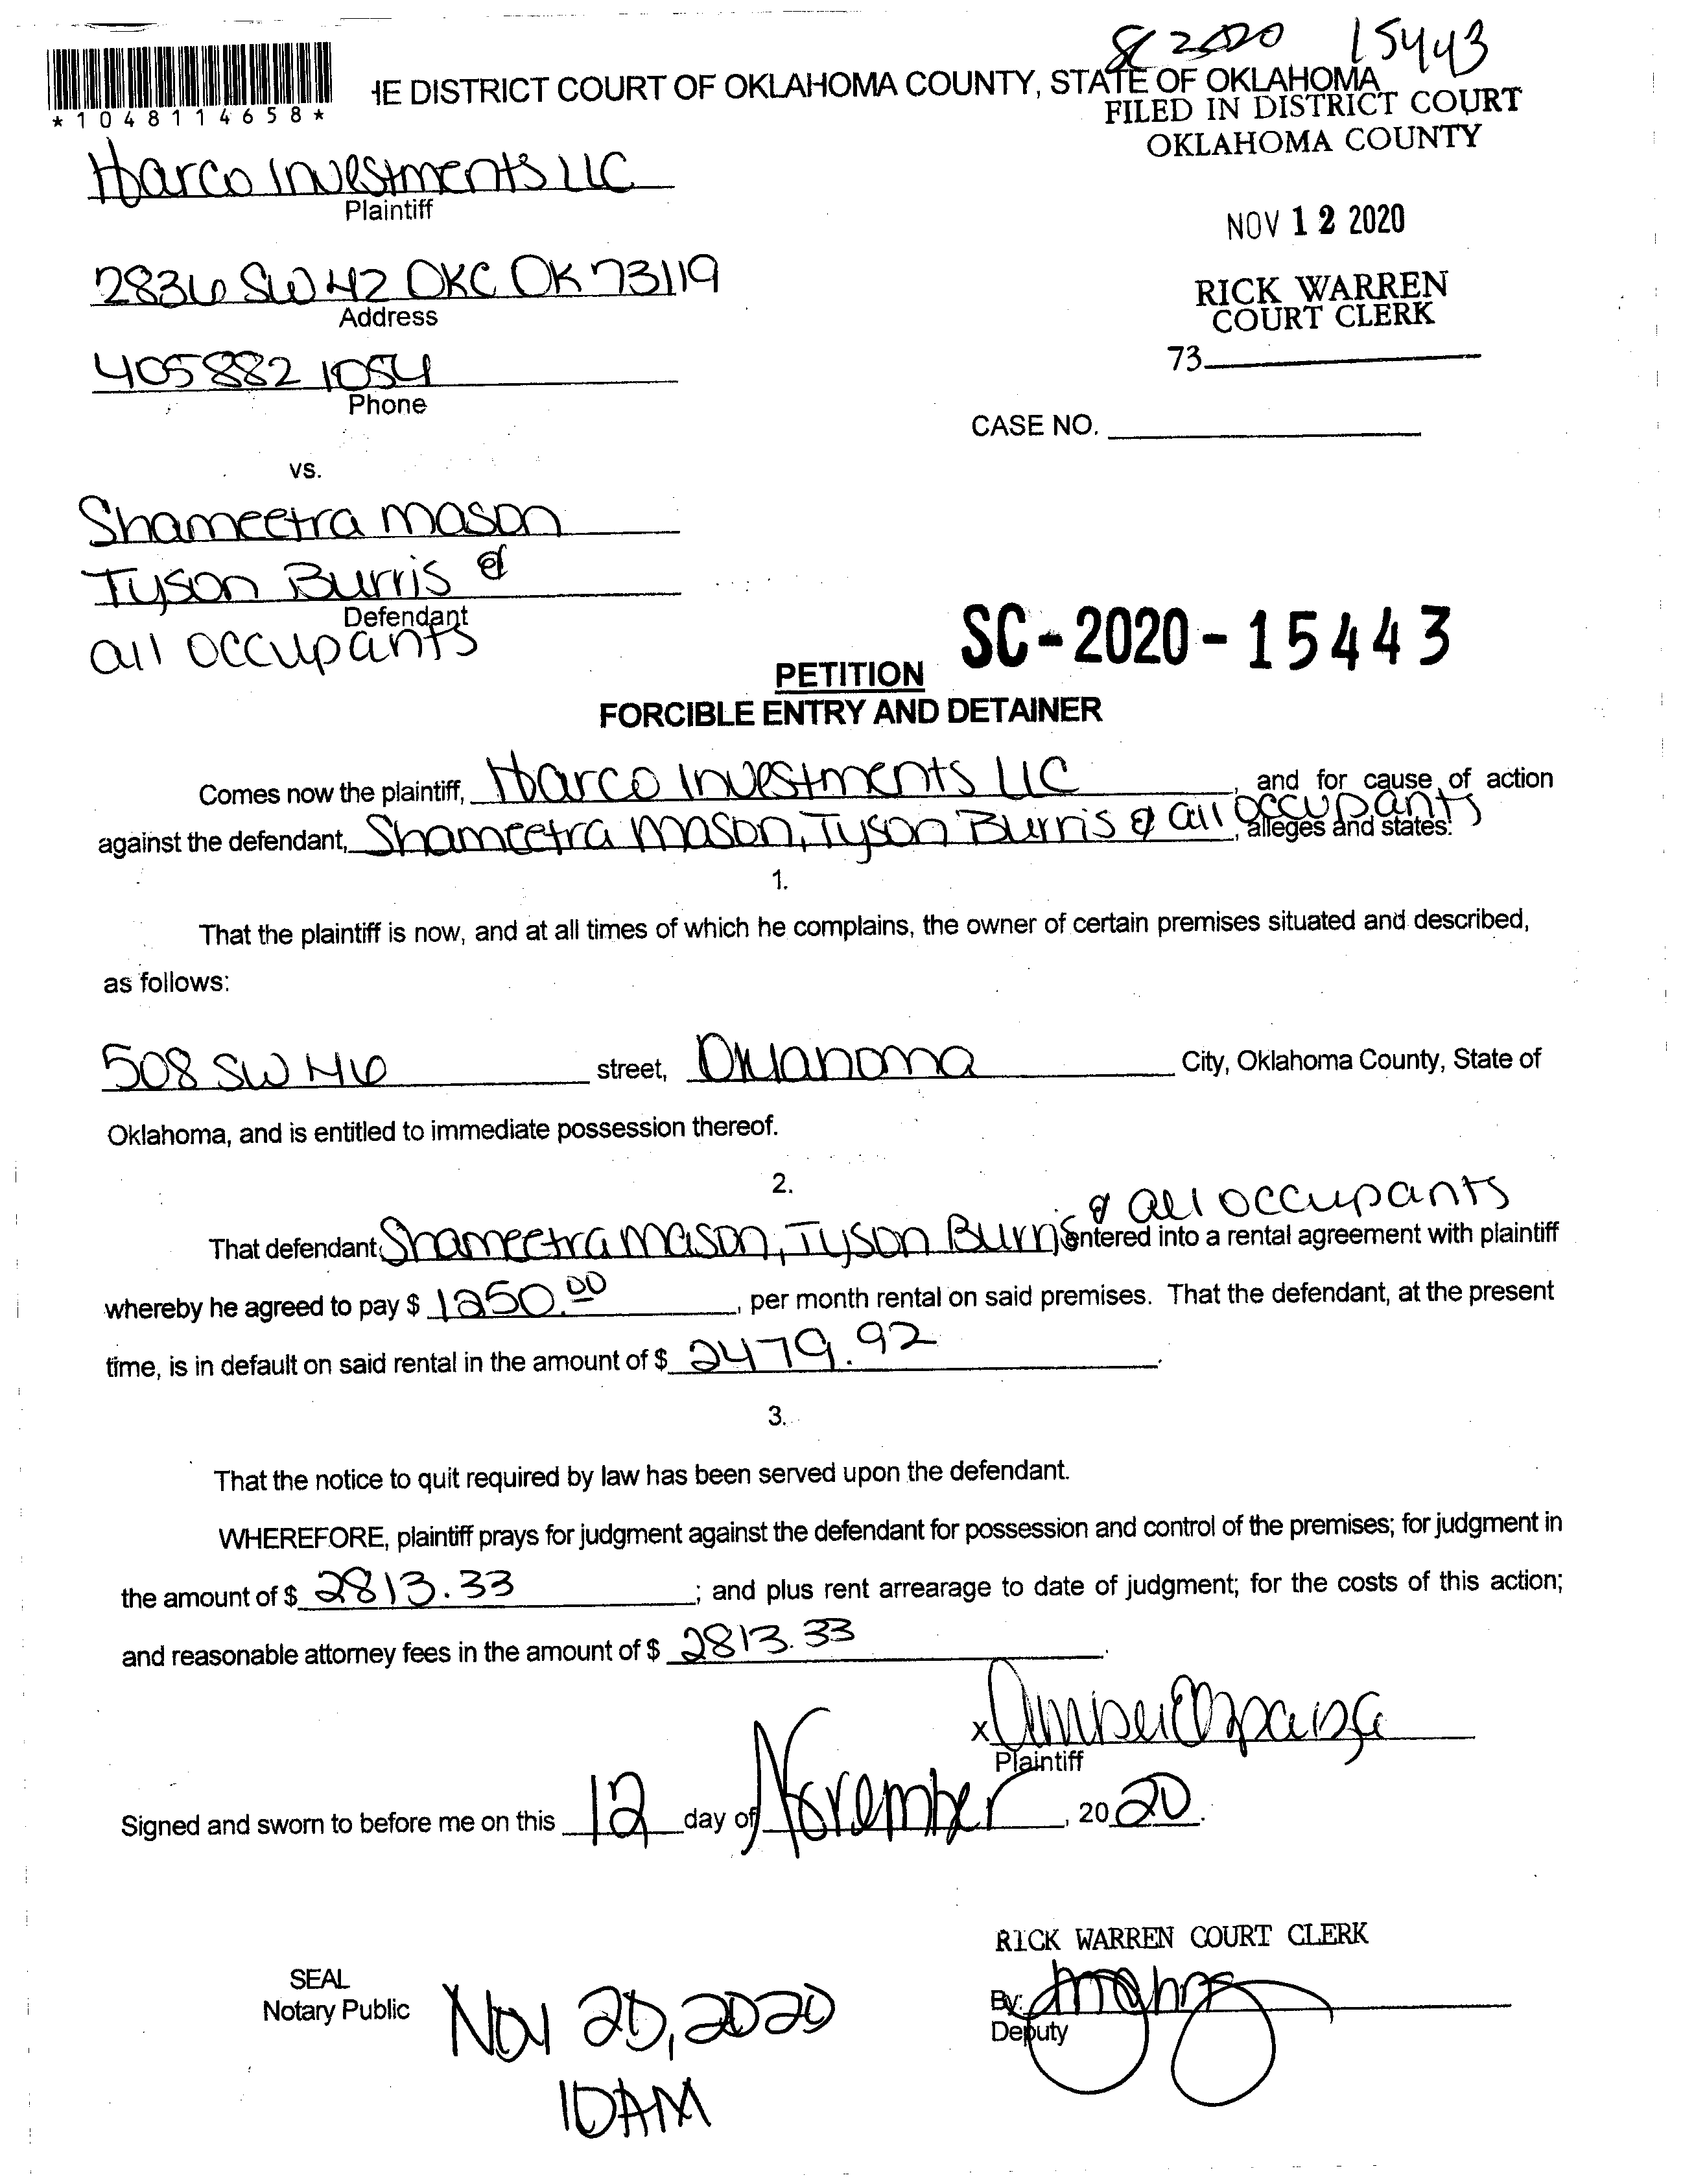 SC 2020 15443
*1048114658*
HE DISTRICT COURT OF OKLAHOMA COUNTY, STATE OF OKLAHOMA
FILED IN DISTRICT COURT
OKLAHOMA COUNTY
Harco Investments LLC
Plaintiff
NOV 12 2020
2836 SW 42 OKC OK 73119
Address
RICK WARREN
COURT CLERK
405 882 1054
Phone
73
CASE NO.
vs.
Shameetra Mason
Tyson Burris &
Defendant
all occupants
SC-2020-15443
PETITION
FORCIBLE ENTRY AND DETAINER
Comes now the plaintiff, Harco Investments LLC, and for cause of action
against the defendant, Shameetra Mason, Tyson Burris & all occupants, alleges and states:
1.
That the plaintiff is now, and at all times of which he complains, the owner of certain premises situated and described,
as follows:
508 SW 46 street, Oklahoma City, Oklahoma County, State of
Oklahoma, and is entitled to immediate possession thereof.
2.
That defendant, Shameetra Mason, Tyson Burris & all occupants entered into a rental agreement with plaintiff
whereby he agreed to pay $ 1250.00, per month rental on said premises. That the defendant, at the present
time, is in default on said rental in the amount of $ 2479.92.
3.
That the notice to quit required by law has been served upon the defendant.
WHEREFORE, plaintiff prays for judgment against the defendant for possession and control of the premises; for judgment in
the amount of $ 2813.33; and plus rent arrearage to date of judgment; for the costs of this action;
and reasonable attorney fees in the amount of $ 2813.33.
x
Plaintiff
Signed and sworn to before me on this 12 day of November, 2020.
RICK WARREN COURT CLERK
SEAL
Notary Public
By:
Deputy
Nov 20, 2020
10AM